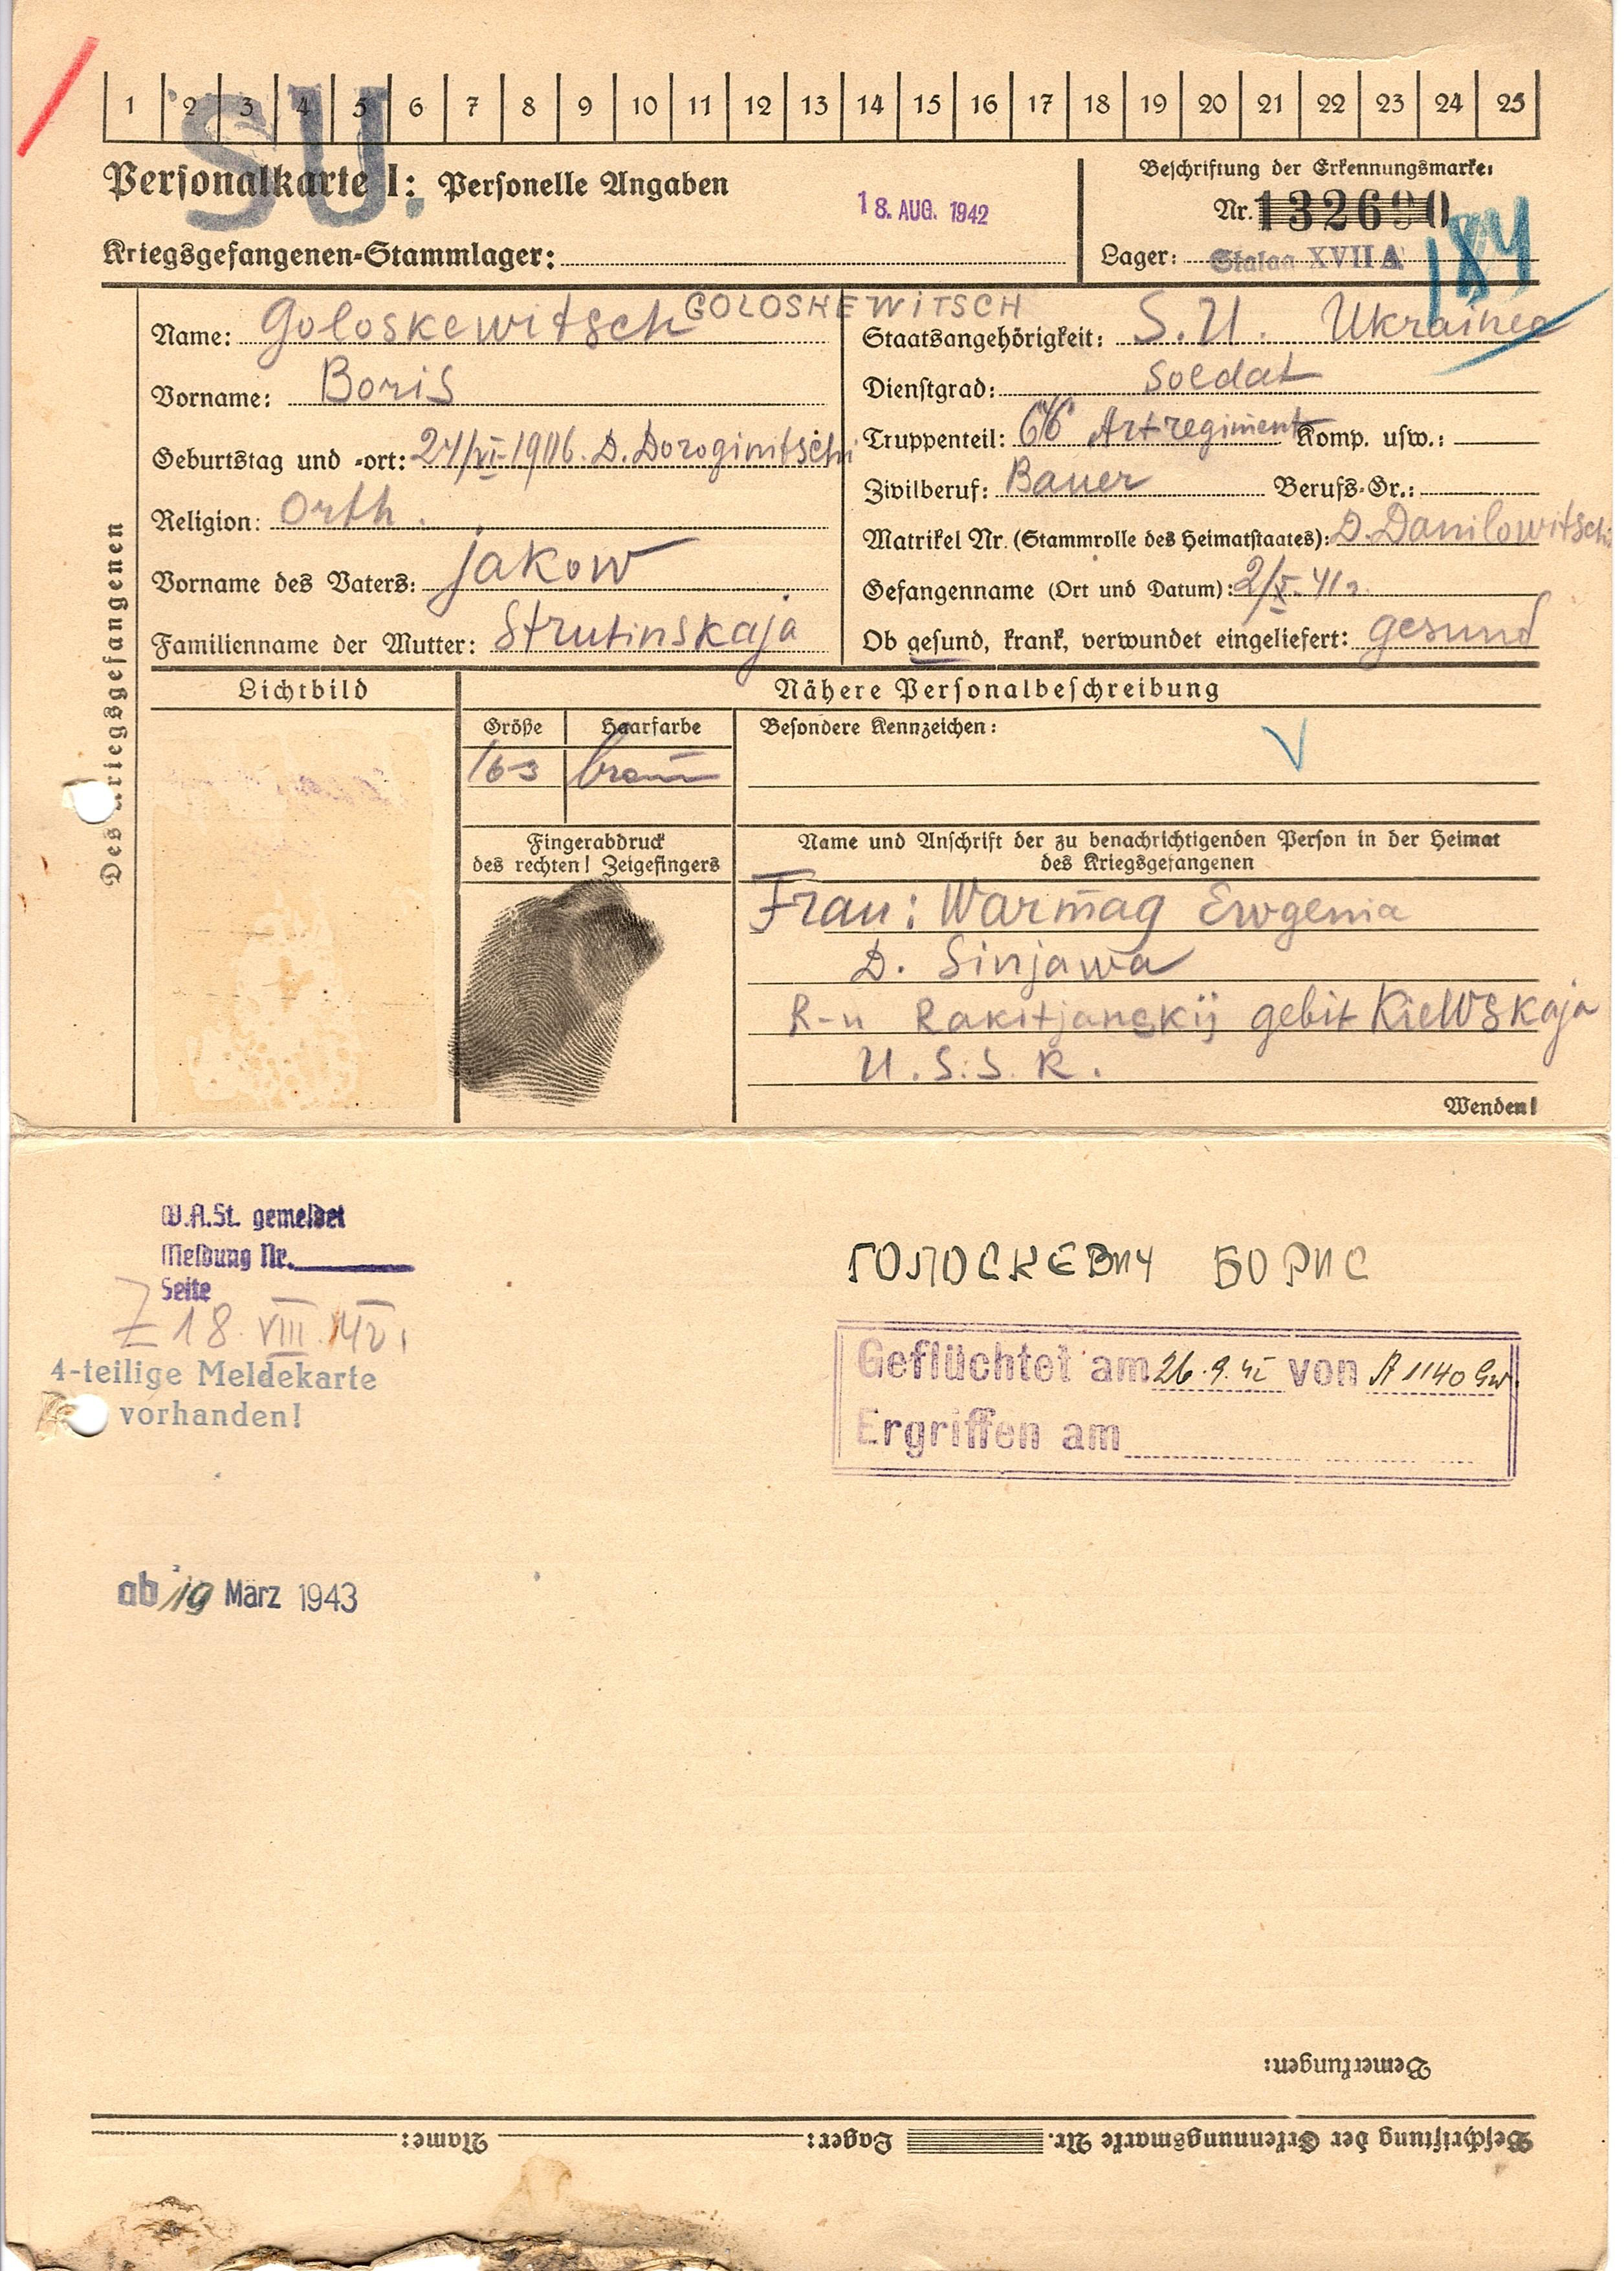 1 2 3 4 5 6 7 8 9 10 11 12 13 14 15 16 17 18 19 20 21 22 23 24 25
SU.
Personalkarte I: Personelle Angaben
18. AUG. 1942
Beschriftung der Erkennungsmarke:
Nr. 132690
184
Kriegsgefangenen-Stammlager:
Lager: Stalag XVII A
Des Kriegsgefangenen
Name: Goloskewitsch GOLOSKEWITSCH
Vorname: Boris
Geburtstag und -ort: 24/VI-1906. D. Doroginitschi
Religion: Orth.
Vorname des Vaters: jakow
Familienname der Mutter: Strutinskaja
Staatsangehörigkeit: S.U. Ukrainer
Dienstgrad: Soldat
Truppenteil: 66 Artregiment Komp. usw.:
Zivilberuf: Bauer Berufs-Gr.:
Matrikel Nr. (Stammrolle des Heimatstaates): D. Danilowitschi
Gefangennahme (Ort und Datum): 2/X-41
Ob gesund, krank, verwundet eingeliefert: gesund
Lichtbild
Nähere Personalbeschreibung
Größe Haarfarbe Besondere Kennzeichen:
163 braun
Fingerabdruck
des rechten! Zeigefingers
Name und Anschrift der zu benachrichtigenden Person in der Heimat
des Kriegsgefangenen
Frau: Warmag Ewgenia
D. Sinjawa
R-n Rakitjanskij gebit Kiewskaja
U.S.S.R.
Wenden!
W.A.St. gemeldet
Meldung Nr.
Seite
Z 18. VIII. 42.
4-teilige Meldekarte
vorhanden!
ГОЛОСКЕВИЧ БОРИС
Geflüchtet am 26.9.42 von A 1140 Gw.
Ergriffen am
ab 19 März 1943
Bemerkungen:
Beschriftung der Erkennungsmarke Nr. Lager: Name: